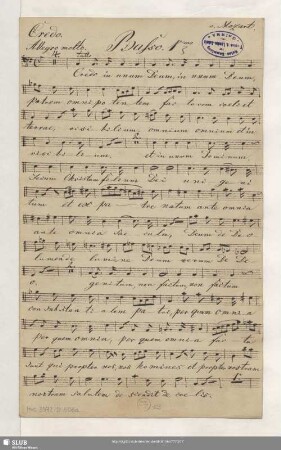 Mozart.
Credo.
Allegro molto.
Basso. 1mo
tutti
Credo in unum Deum, in unum Deum,
patrem omni po ten tem fac torem coeli et
terrae, visi bi lium, omnium omnium et in
visi bi li um, et in unum Dominum
Jesum Christum filium Dei uni geni
tum et ex pa tre natum ante omnia
ante omnia sae cula, Deum de De o
lumen de lumine Deum verum de De
o. genitum, non factum, non factum
con substan ti a lem pa tri, per quem omnia
per quem omnia, per quem omnia fac ta
sunt qui propter nos, nos homines et propter nostram
nostram salutem de scendit de coe lis.
SLUB